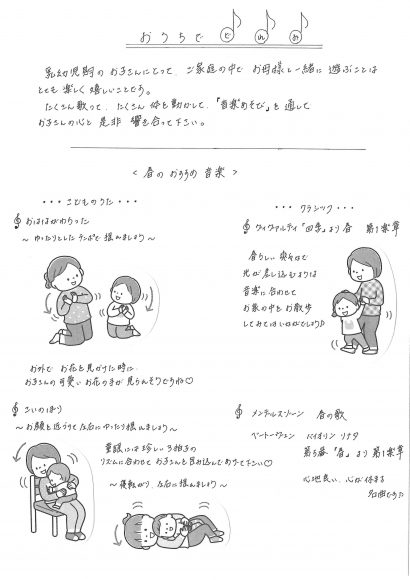 おうちで ど れ み
乳幼児期のお子さんにとって、ご家庭の中で お母様と一緒に 遊ぶことは
とても 楽しく 嬉しいことです。
たくさん歌って、たくさん 体を動かして、「音楽あそび」を通して
お子さんの心と 是非 響き合って下さい。
< 春の おすすめ 音楽 >
・・・こどものうた・・・
おはながわらった
～ゆったりとしたテンポで 揺れましょう～
お外で お花を見かけた時に
お子さんの可愛いお花の手が 見られそうですね♡
こいのぼり
～お顔を近づけて 左右にゆったり揺れましょう～
童謡には珍しい3拍子の
リズムに合わせて お子さんを包み込んであげて下さい♡
～寝転がり、左右に揺れましょう～
・・・クラシック・・・
ヴィヴァルディ「四季」より 春 第1楽章
春らしい 爽やかで
光が差し込むような
音楽に合わせて
お家の中を お散歩
してみてはいかがでしょう♪
メンデルスゾーン 春の歌
ベートーヴェン バイオリン ソナタ
第5番「春」より 第1楽章
心地良い、心が休まる
名曲です♫